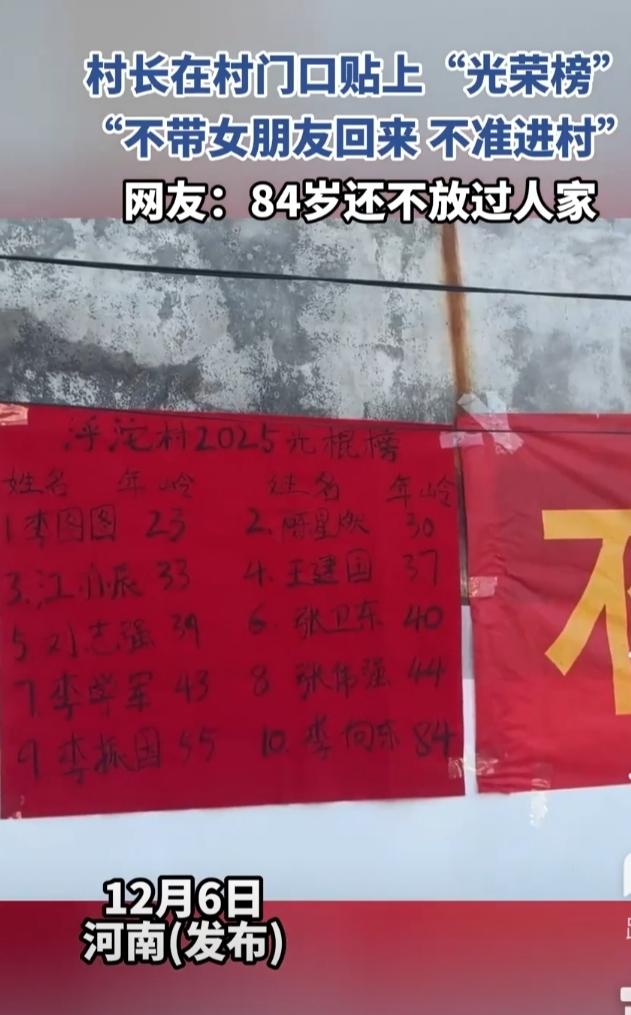 村长在村门口贴上“光荣榜”
“不带女朋友回来 不准进村”
网友：84岁还不放过人家
浮沱村2025光棍榜
姓名 年岭 姓名 年岭
1.李图图 23 2.陈星燃 30
3.江小辰 33 4.王建国 37
5.刘志强 39 6.张卫东 40
7.李学军 43 8.张伟强 44
9.李振国 55 10.李向东 84
不
12月6日
河南(发布)